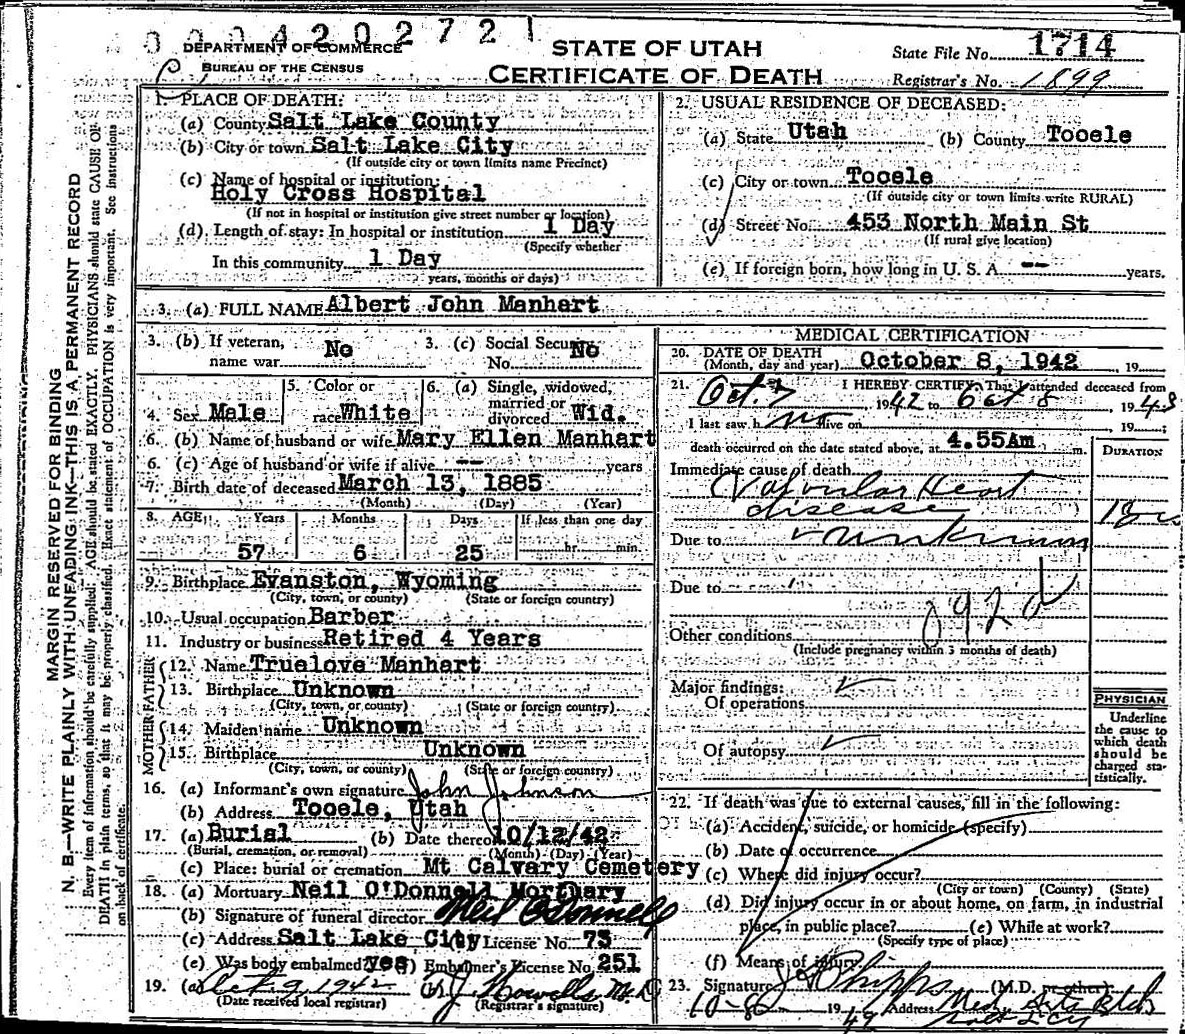 000420272
DEPARTMENT OF COMMERCE
BUREAU OF THE CENSUS
STATE OF UTAH
CERTIFICATE OF DEATH
State File No. 1714
Registrar's No. 1899
MARGIN RESERVED FOR BINDING
N. B.—WRITE PLAINLY WITH UNFADING INK—THIS IS A PERMANENT RECORD
Every item of information should be carefully supplied. AGE should be stated EXACTLY. PHYSICIANS should state CAUSE OF
DEATH in plain terms, so that it may be properly classified. Exact statement of OCCUPATION is very important. See instructions
on back of certificate.
1. PLACE OF DEATH:
(a) County Salt Lake County
(b) City or town Salt Lake City
(If outside city or town limits name Precinct)
(c) Name of hospital or institution:
Holy Cross Hospital
(If not in hospital or institution give street number or location)
(d) Length of stay: In hospital or institution 1 Day
(Specify whether
In this community 1 Day
years, months or days)
2. USUAL RESIDENCE OF DECEASED:
(a) State Utah (b) County Tooele
(c) City or town Tooele
(If outside city or town limits write RURAL)
(d) Street No. 453 North Main St
(If rural give location)
(e) If foreign born, how long in U. S. A. -- years.
3. (a) FULL NAME Albert John Manhart
3. (b) If veteran, name war No 3. (c) Social Security No. No
4. Sex Male 5. Color or race White 6. (a) Single, widowed, married or divorced Wid.
6. (b) Name of husband or wife Mary Ellen Manhart
6. (c) Age of husband or wife if alive -- years
7. Birth date of deceased March 13, 1885
(Month) (Day) (Year)
8. AGE: Years Months Days If less than one day
57 6 25 hr. min.
9. Birthplace Evanston, Wyoming
(City, town, or county) (State or foreign country)
10. Usual occupation Barber
11. Industry or business Retired 4 Years
FATHER
12. Name Truelove Manhart
13. Birthplace Unknown
(City, town, or county) (State or foreign country)
MOTHER
14. Maiden name Unknown
15. Birthplace Unknown
(City, town, or county) (State or foreign country)
16. (a) Informant's own signature John Johnson
(b) Address Tooele, Utah
17. (a) Burial (b) Date thereof 10/12/42
(Burial, cremation, or removal) (Month) (Day) (Year)
(c) Place: burial or cremation Mt Calvary Cemetery
18. (a) Mortuary Neil O'Donnell Mortuary
(b) Signature of funeral director Neil O'Donnell
(c) Address Salt Lake City License No. 73
(e) Was body embalmed? yes (f) Embalmer's License No. 251
19. (a) Oct. 9, 1942 (b) J. Howells M.D.
(Date received local registrar) (Registrar's signature)
MEDICAL CERTIFICATION
20. DATE OF DEATH
(Month, day and year) October 8, 1942, 19
21. I HEREBY CERTIFY, That I attended deceased from
Oct. 7 1942 to Oct 8, 194
I last saw h alive on , 19 ;
death occurred on the date stated above, at 4.55Am m.
DURATION
Immediate cause of death
Valvular Heart
disease
Due to unknown
Due to
92d
Other conditions
(Include pregnancy within 3 months of death)
Major findings:
Of operations
Of autopsy
PHYSICIAN
Underline
the cause to
which death
should be
charged sta-
tistically.
22. If death was due to external causes, fill in the following:
(a) Accident, suicide, or homicide (specify)
(b) Date of occurrence
(c) Where did injury occur?
(City or town) (County) (State)
(d) Did injury occur in or about home, on farm, in industrial
place, in public place? (e) While at work?
(Specify type of place)
(f) Means of injury
23. Signature Phipps (M.D. or other)
10-8 19 42 Address Med. Arts Bldg
Salt L Cy